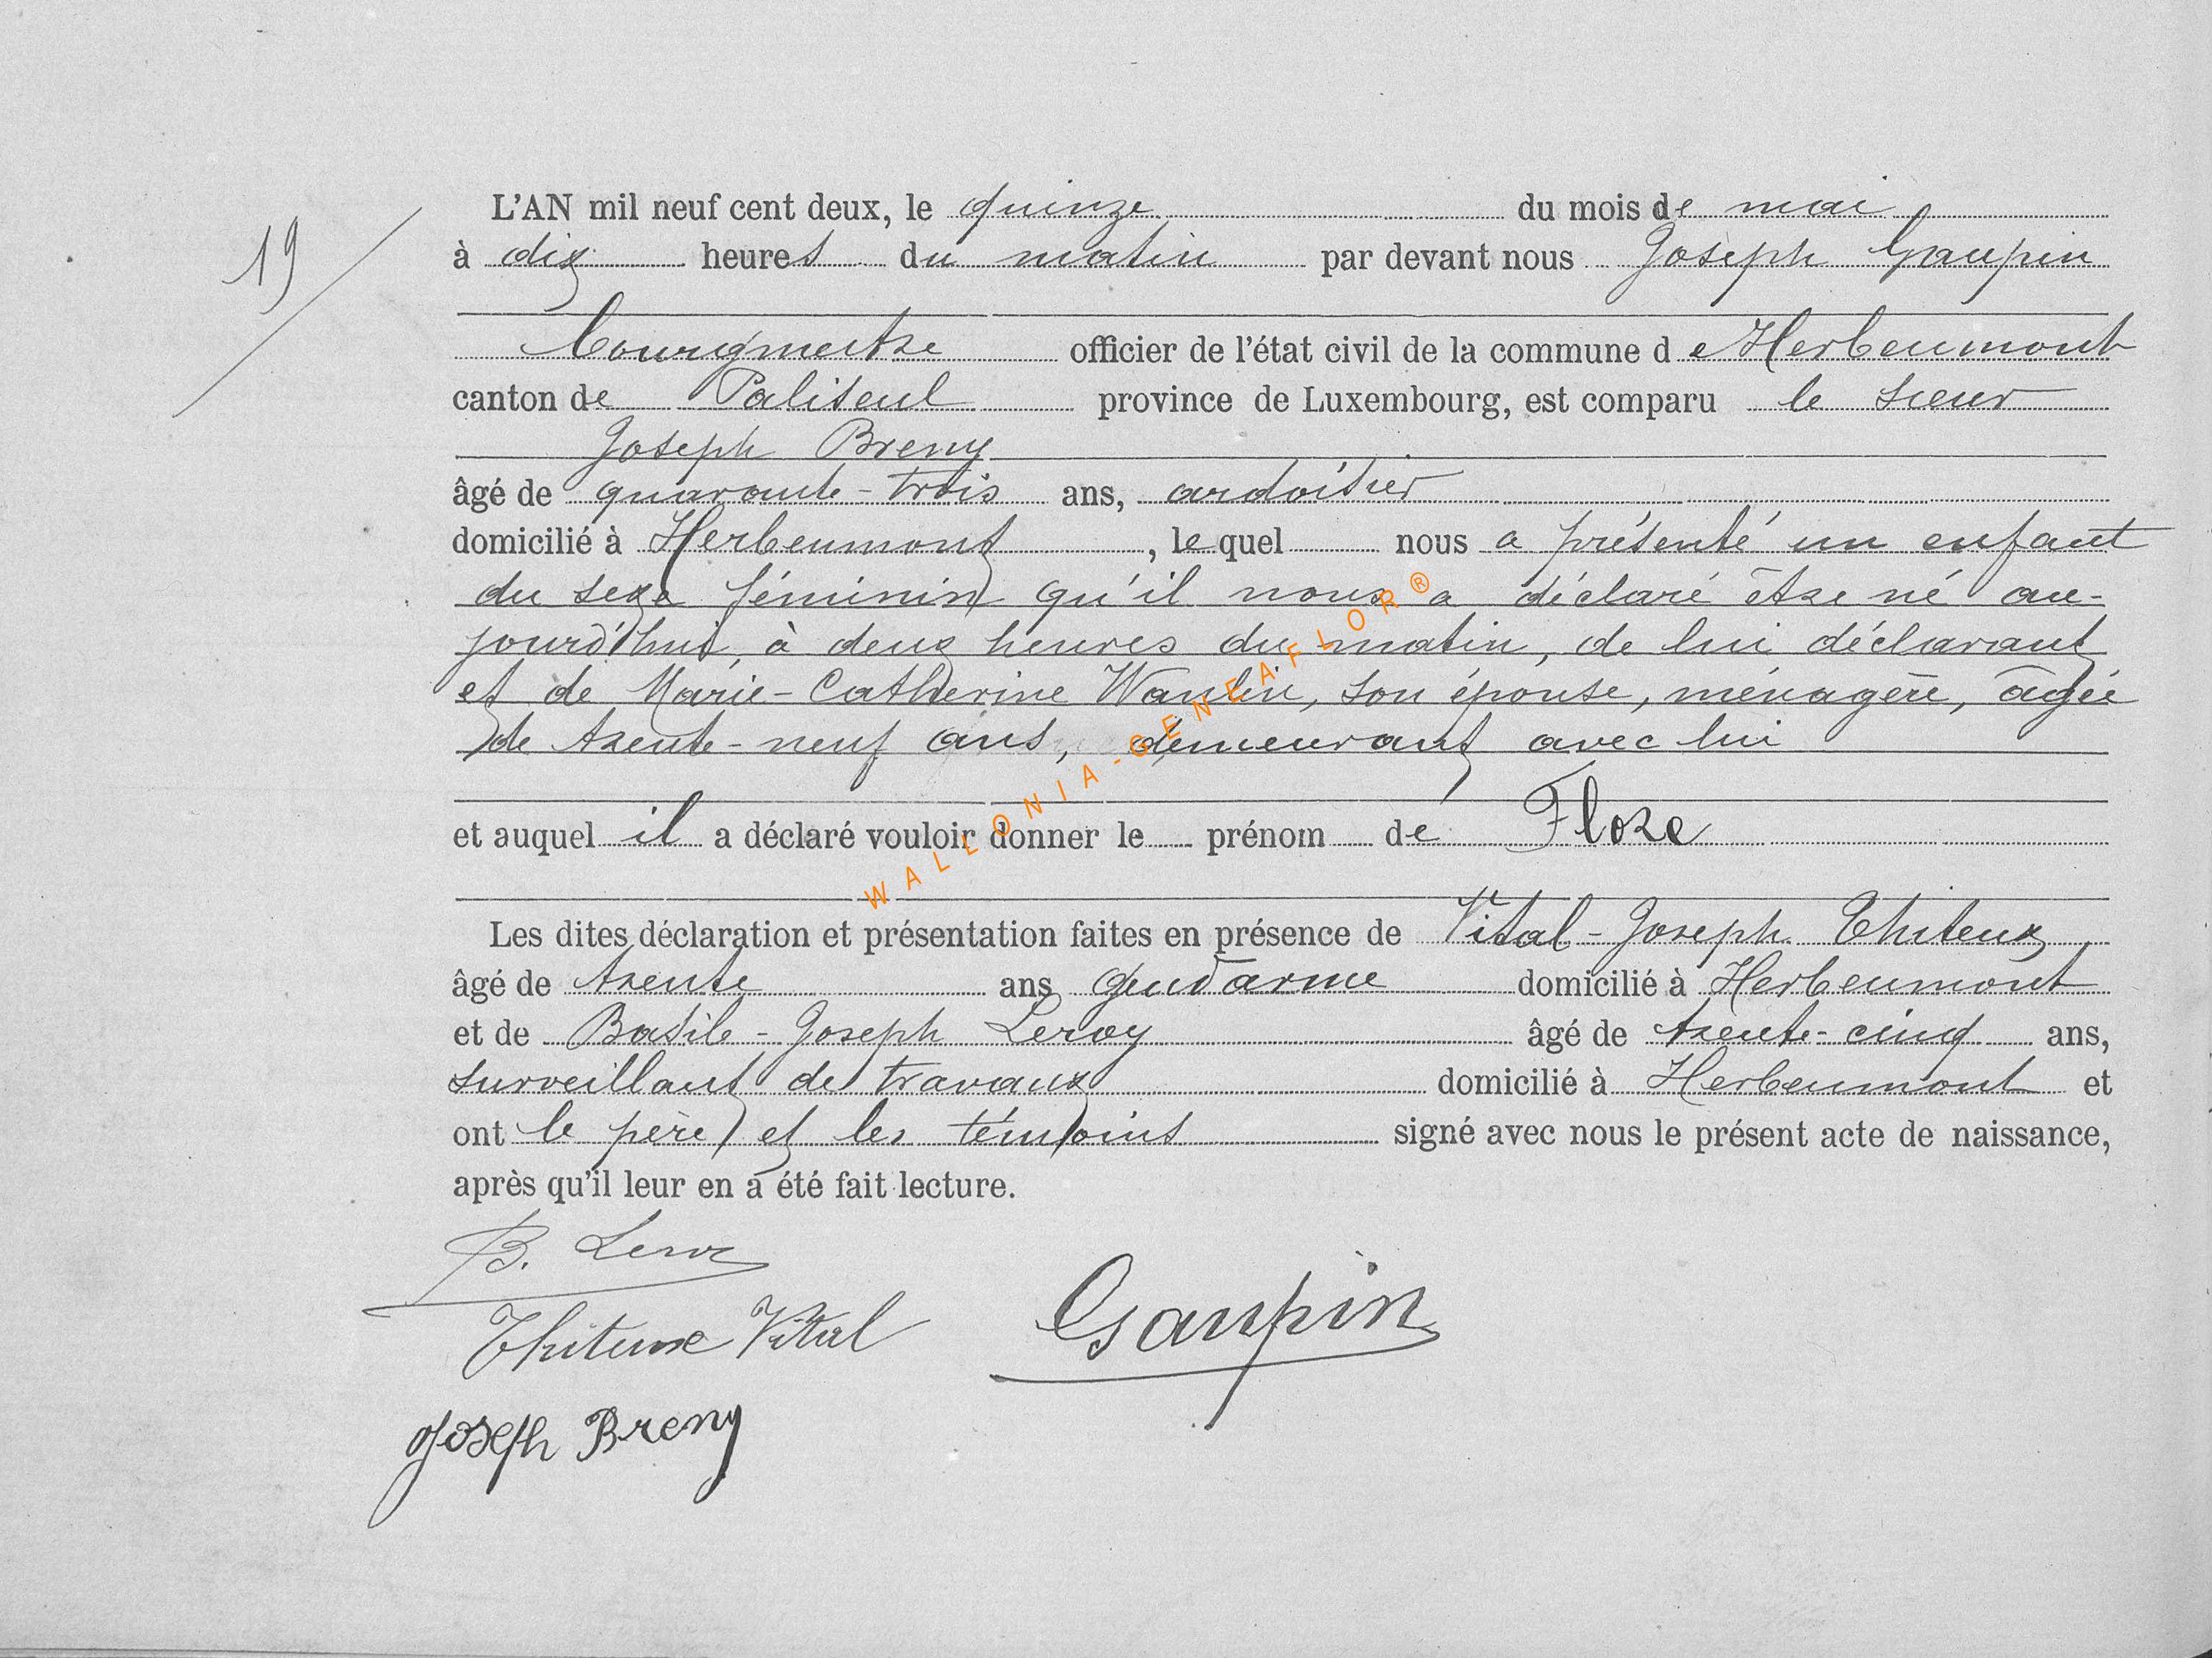 19
L'AN mil neuf cent deux, le quinze du mois de mai
à dix heures du matin par devant nous Joseph Gaupin
bourgmestre officier de l'état civil de la commune de Herbeumont
canton de Paliseul province de Luxembourg, est comparu le sieur
Joseph Breny
âgé de quarante-trois ans, ardoisier
domicilié à Herbeumont, lequel nous a présenté un enfant
du sexe féminin qu'il nous a déclaré être né au-
jourd'hui, à deux heures du matin, de lui déclarant
et de Marie-Catherine Wanlin, son épouse, ménagère, âgée
de trente-neuf ans, demeurant avec lui
et auquel il a déclaré vouloir donner le prénom de Flore
Les dites déclaration et présentation faites en présence de Vital-Joseph Thiteux,
âgé de trente ans gendarme domicilié à Herbeumont
et de Basile-Joseph Leroy âgé de trente-cinq ans,
surveillant de travaux domicilié à Herbeumont et
ont le père et les témoins signé avec nous le présent acte de naissance,
après qu'il leur en a été fait lecture.
B. Leroy
Thiteux Vital
Gaupin
Joseph Breny
WALLONIA-GENEAFLOR®